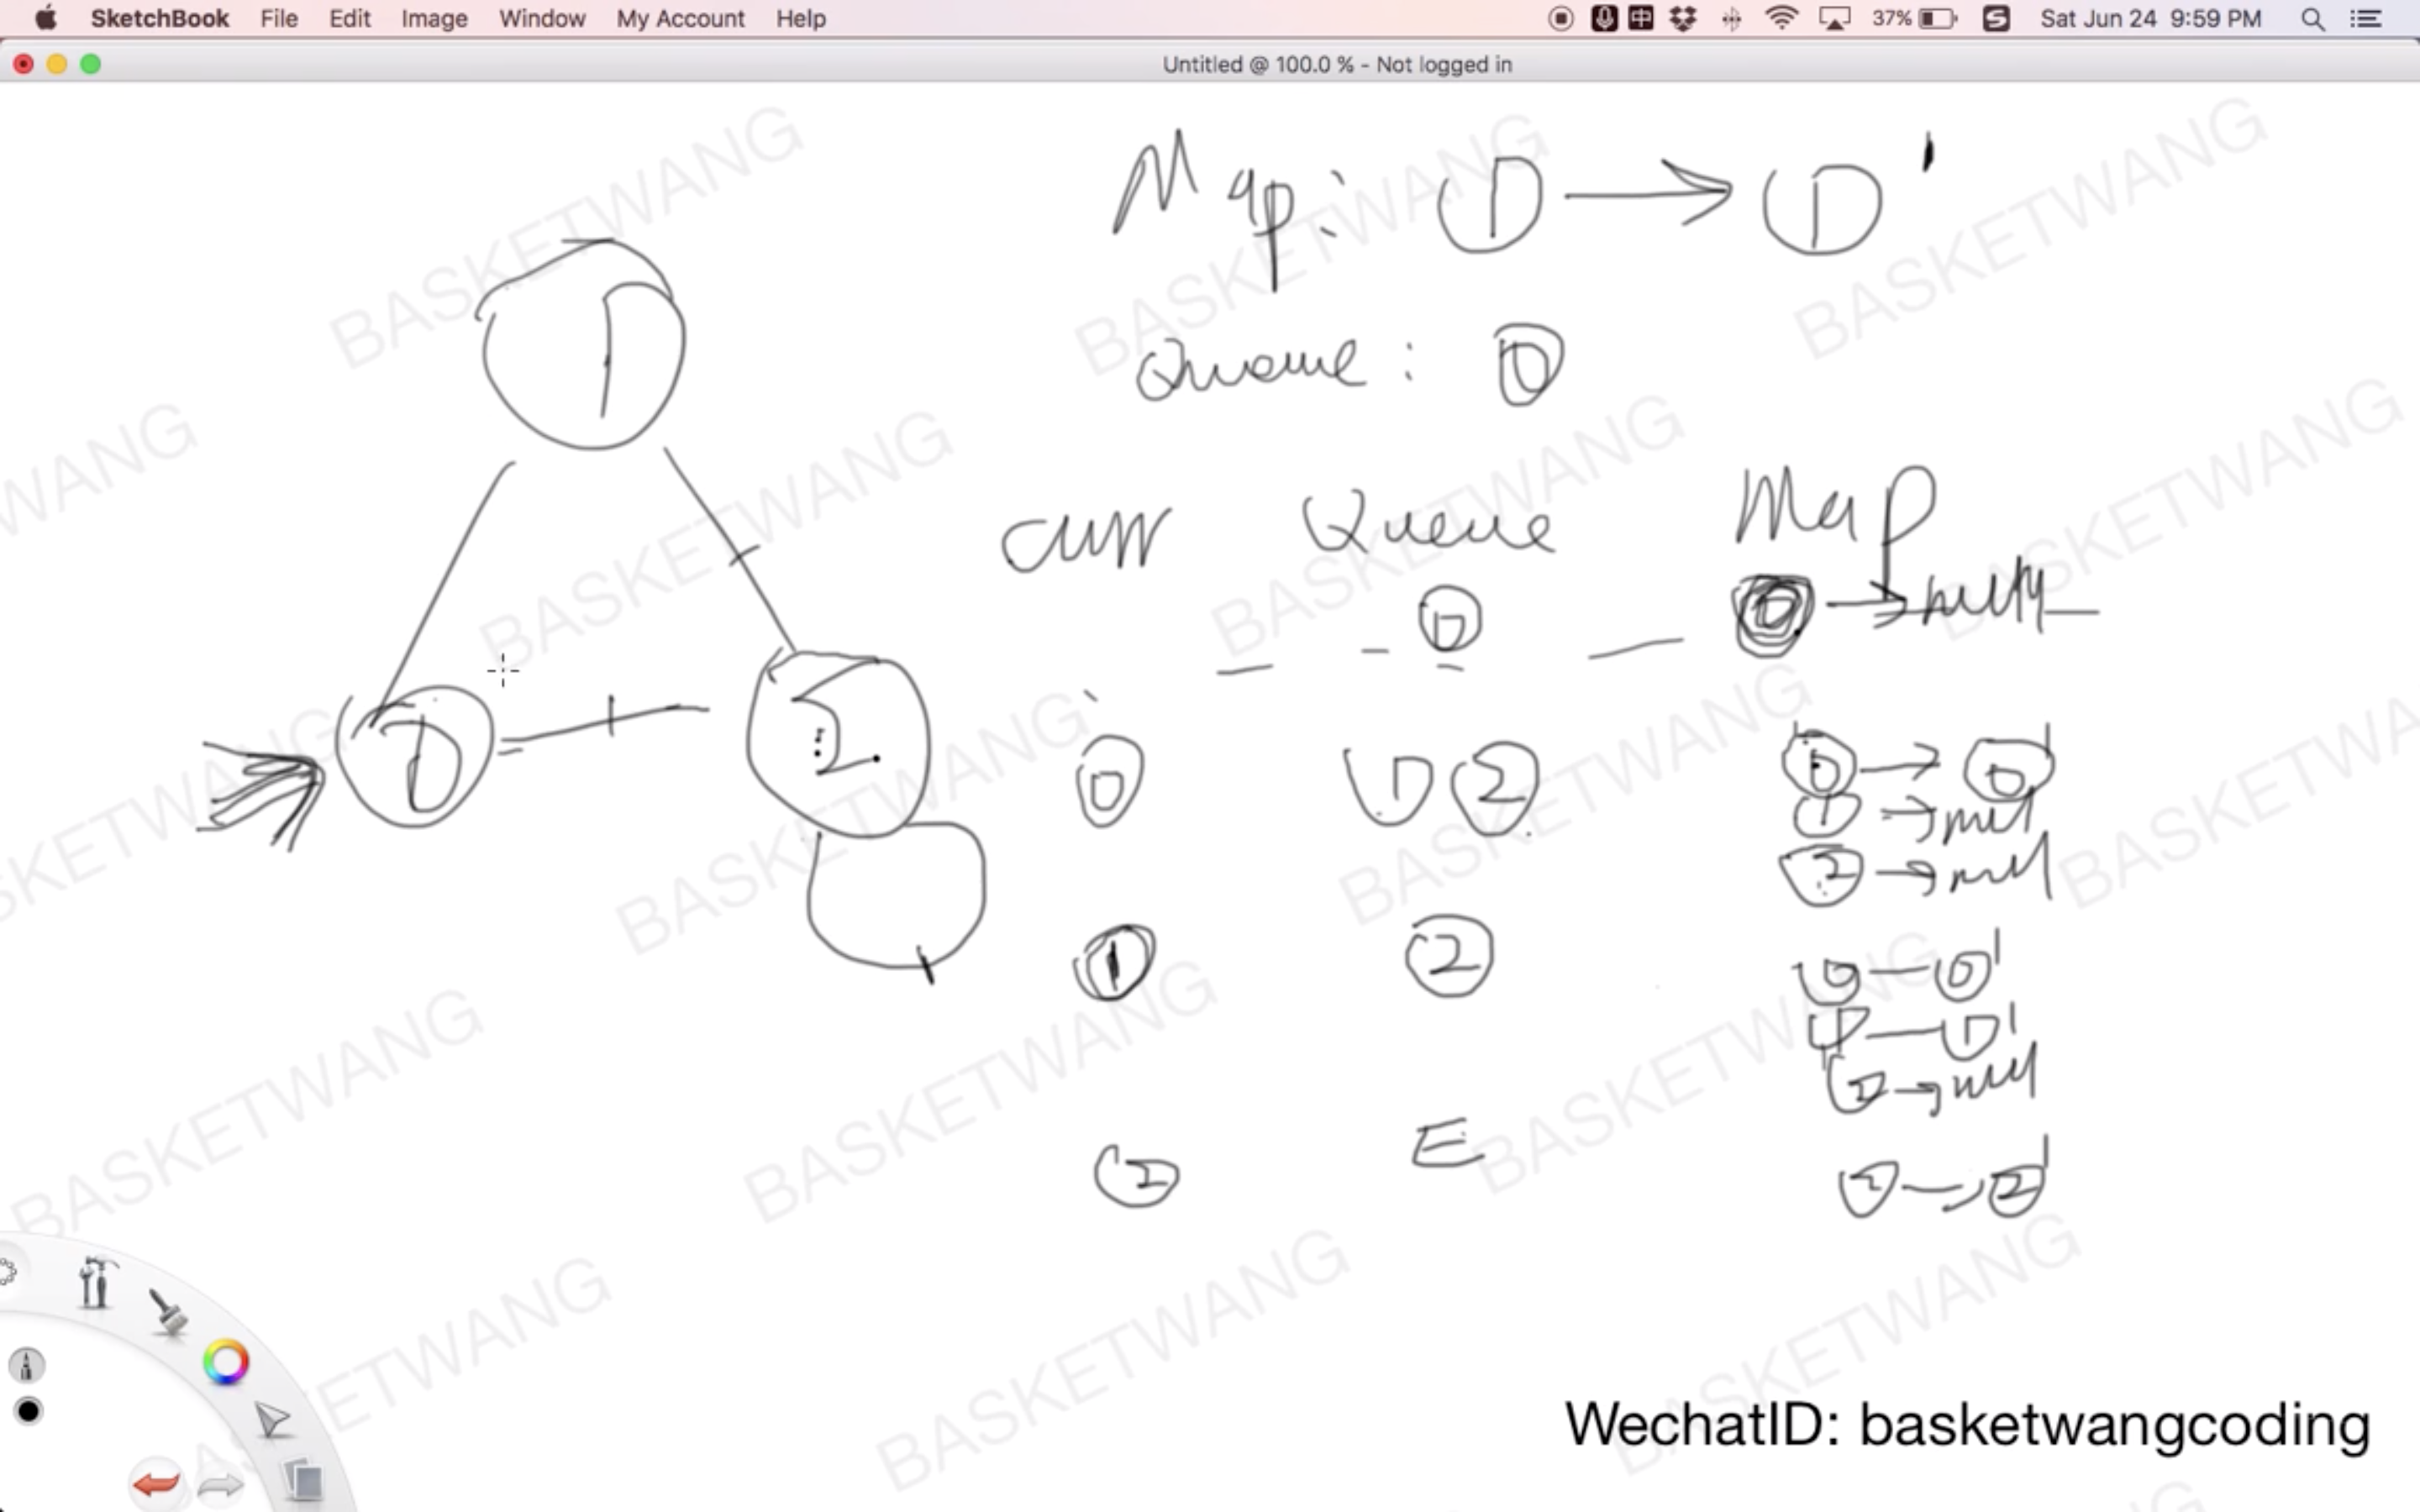 SketchBook File Edit Image Window My Account Help 37% Sat Jun 24 9:59 PM
Untitled @ 100.0 % - Not logged in
Map: 1 → 1'
Queue: 0
1
curr Queue Map
0 0 → null
0 2
0 1 2 0 → 0'
1 → null
2 → null
1 2 0 — 0'
1 — 1'
2 → null
2 E 2 → 2'
BASKETWANG
WechatID: basketwangcoding